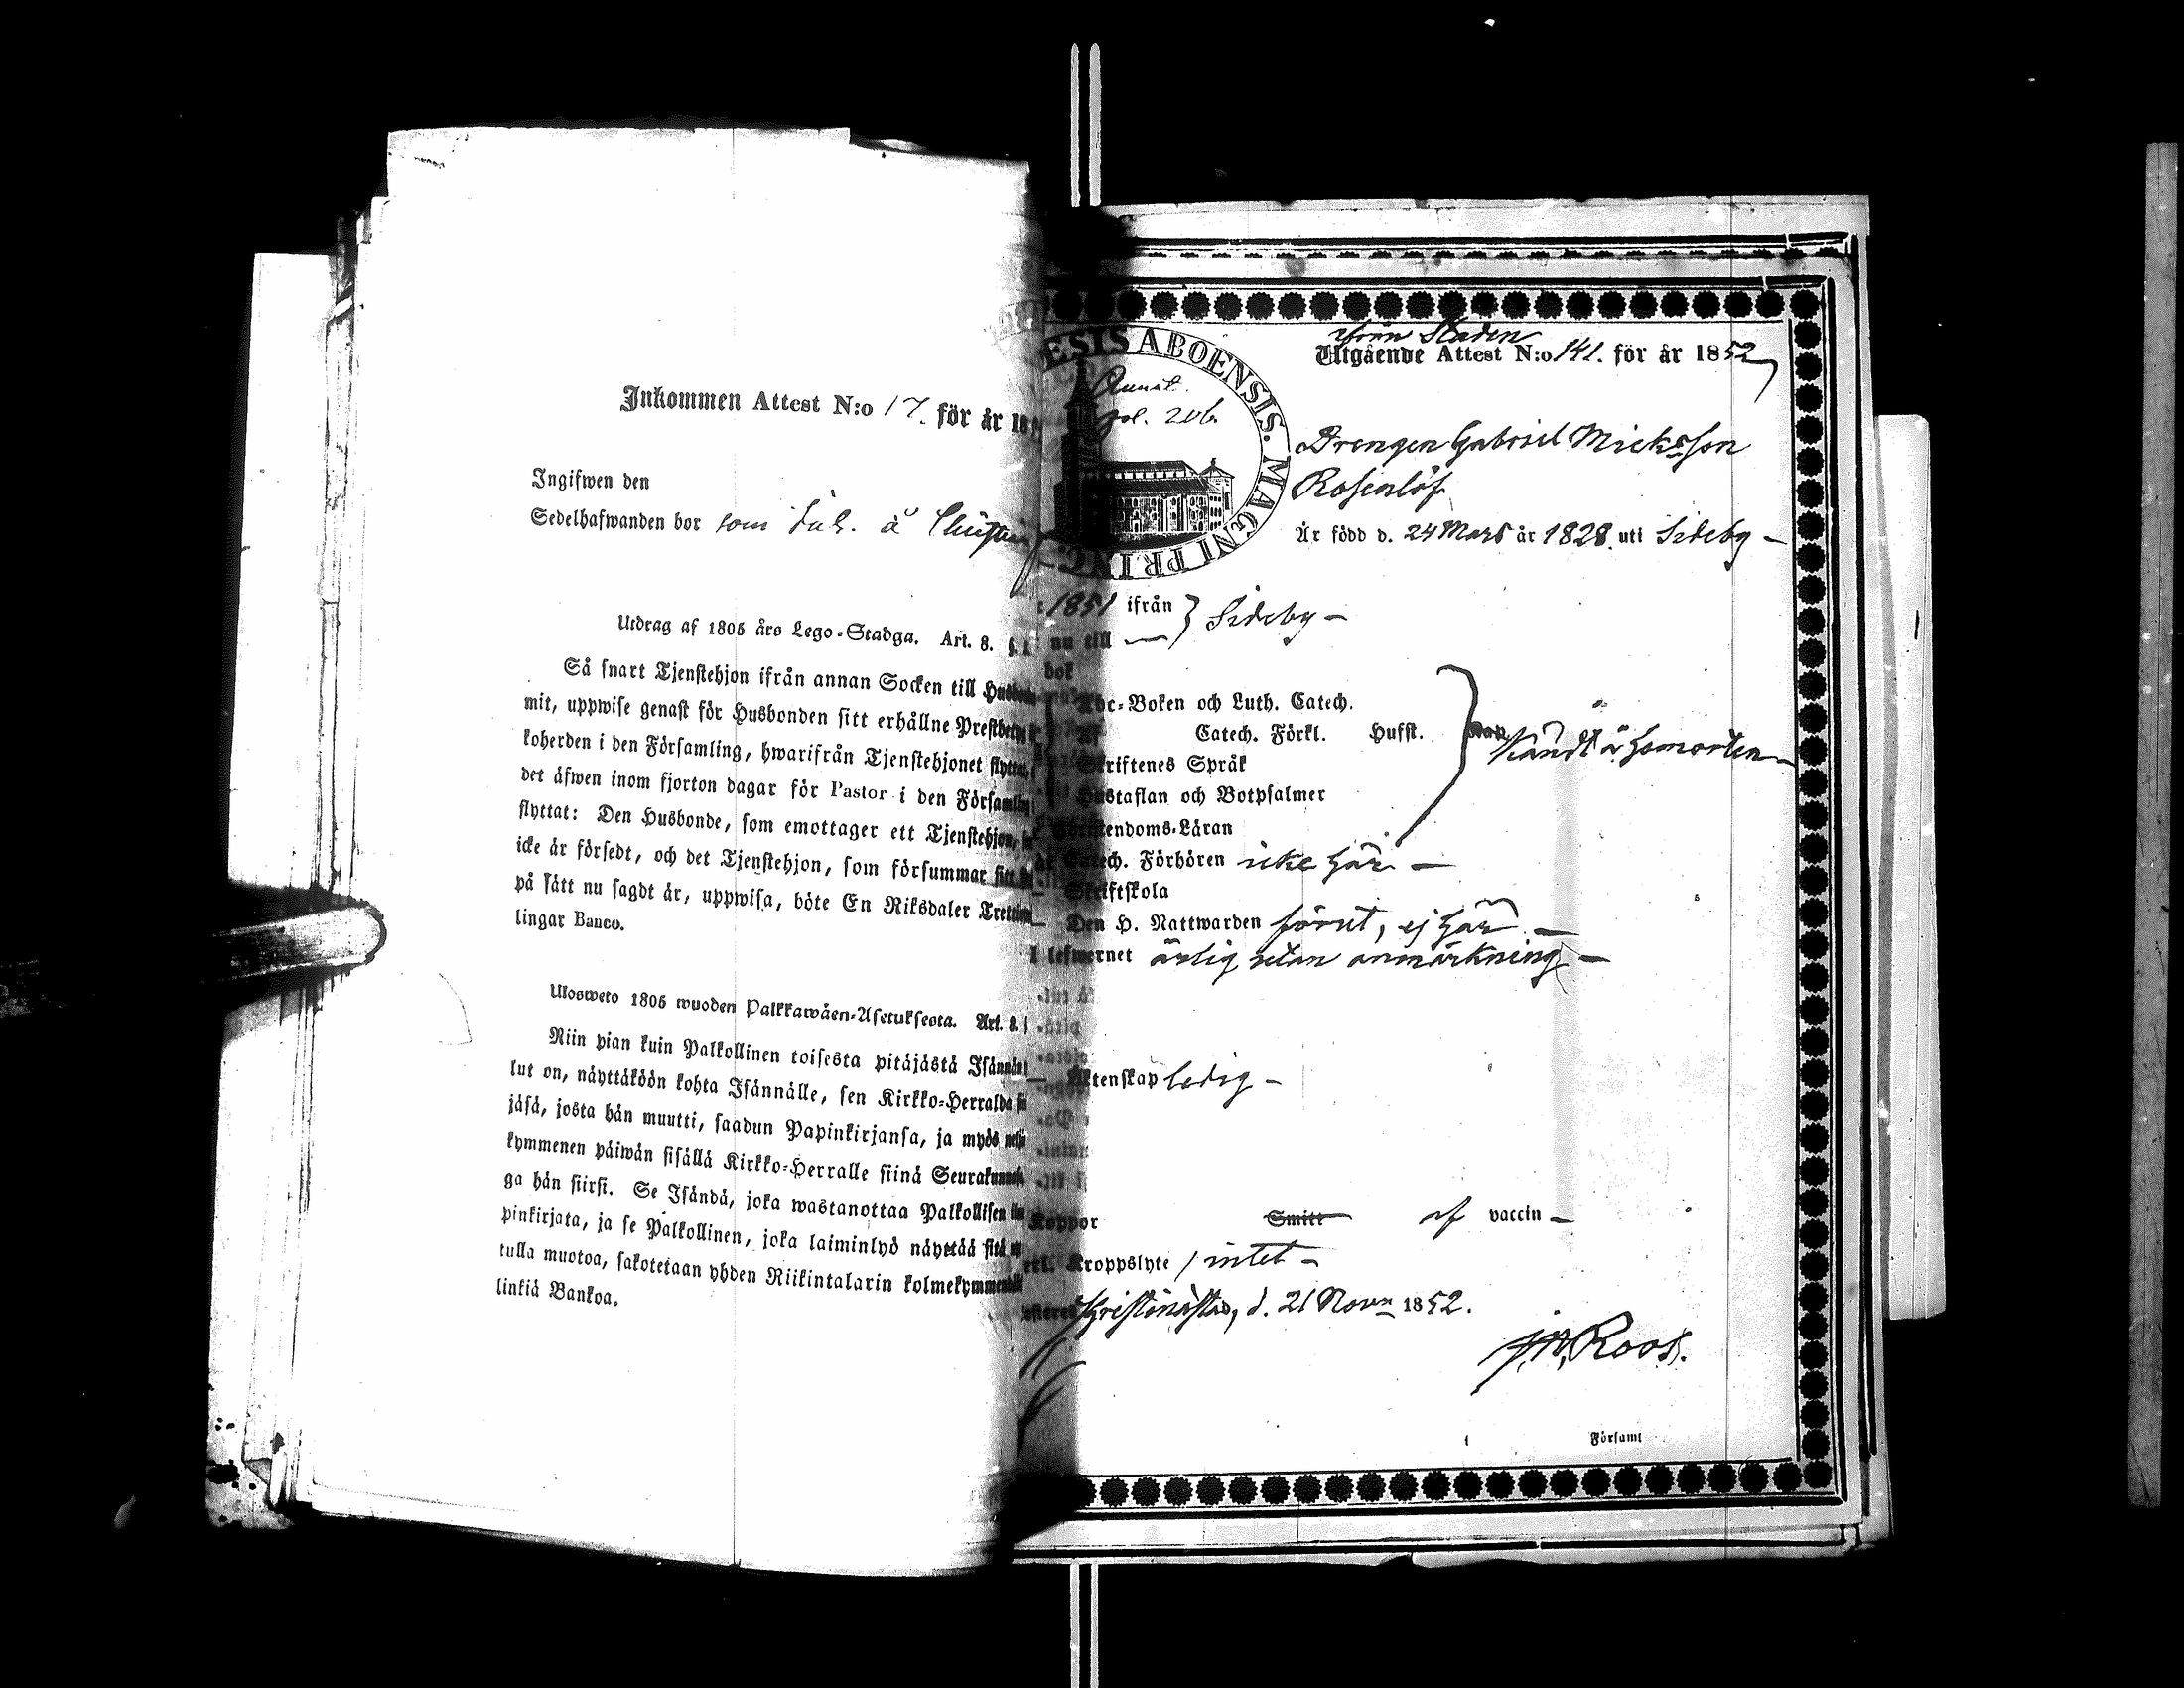 Inkommen Attest N:o 17. för år 18
Ingifwen den
Sedelhafwanden bor som
Utdrag af 1805 års Lego-Stadga. Art. 8.
Så snart Tjenstehjon ifrån annan Socken till
mit, uppwise genast för Husbonden sitt erhållne
koherden i den Församling, hwarifrån Tjenstehjonet
det äfwen inom fjorton dagar för Pastor i den
flyttat: Den Husbonde, som emottager ett Tjenstehjon,
icke är försedt, och det Tjenstehjon, som försummar
på sått nu sagdt är, uppwisa, böte En Riksdaler
lingar Banco.
Ulosweto 1805 wuoden Palkkawäen-Asetuksesta. Art. 8.
Niin pian kuin Palkollinen toisesta pitäjästä
lut on, näyttäköön kohta Isännälle, sen Kirkko-Herralda
jäsä, josta hän muutti, saadun Papinkirjansa, ja myös
kymmenen päiwän sisällä Kirkko-Herralle siinä
ga hän siirsi. Se Isändä, joka wastanottaa Palkollisen
pinkirjata, ja se Palkollinen, joka laiminlyö näyttää sitä
tulla muotoa, sakotetaan yhden Riikintalarin
linkiä Bankoa.
ESIS ABOENSIS. MAGNI PRINC
fol. 206.
från Staden
Utgående Attest N:o 141. för år 1852
Drengen Gabriel Micksson
Rosenlöf
Är född d. 24 Mars år 1828. uti Sideby –
1851 ifrån } Sideby –
nu till —
Abc-Boken och Luth. Catech.
Catech. Förkl. Hufst.
Skriftenes Språk
Hustaflan och Botpsalmer
Christendoms-Läran
Catech. Förhören icke här –
Skriftskola
Den H. Nattwarden förut, ej här –
lefwernet ärlig utan anmärkning –
Äktenskap ledig –
Koppor Smitt af vaccin –
Kroppslyte / intet –
Kristinestad, d. 21 Novr 1852.
Roos.
Församl